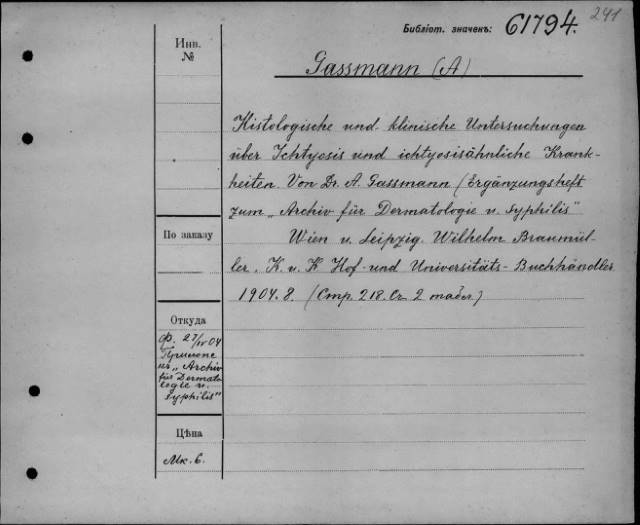 241
Библіот. значекъ: 61794.
Инв. №
Gassmann (A)
Histologische und klinische Untersuchungen
über Ichtyosis und ichtyosisähnliche Krank-
heiten. Von Dr. A. Gassmann (Ergänzungsheft
zum „Archiv für Dermatologie u. Syphilis"
По заказу
Wien u. Leipzig. Wilhelm Braumül-
ler, K. u. K Hof- und Universitäts-Buchhändler
1904. 8. (Стр. 218. Съ 2 табл.)
Откуда
Ф. 27/IV 04
„Archiv
für Dermato
logie u.
Syphilis"
Цѣна
Мк. 6.